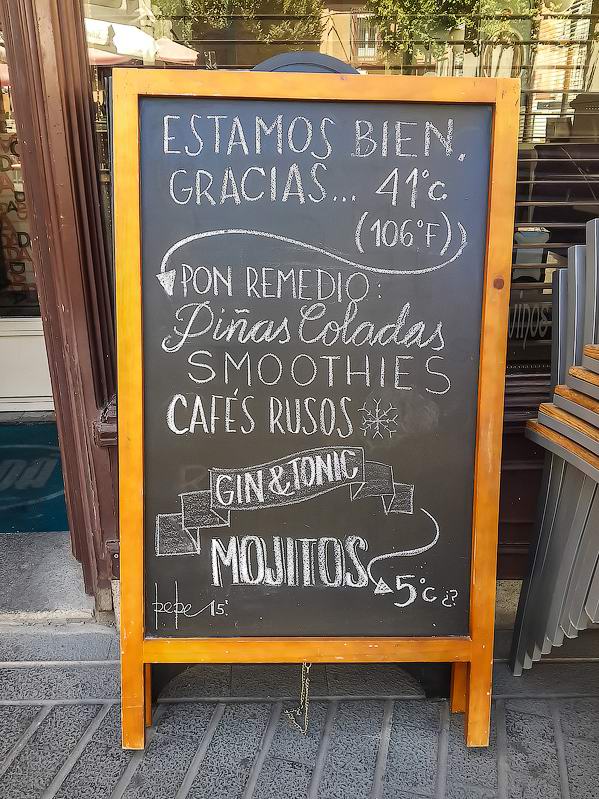 ESTAMOS BIEN,
GRACIAS... 41°c
(106°F)
PON REMEDIO:
Piñas Coladas
SMOOTHIES
CAFÉS RUSOS
GIN & TONIC
MOJITOS
5°c ¿?
pepe 15'